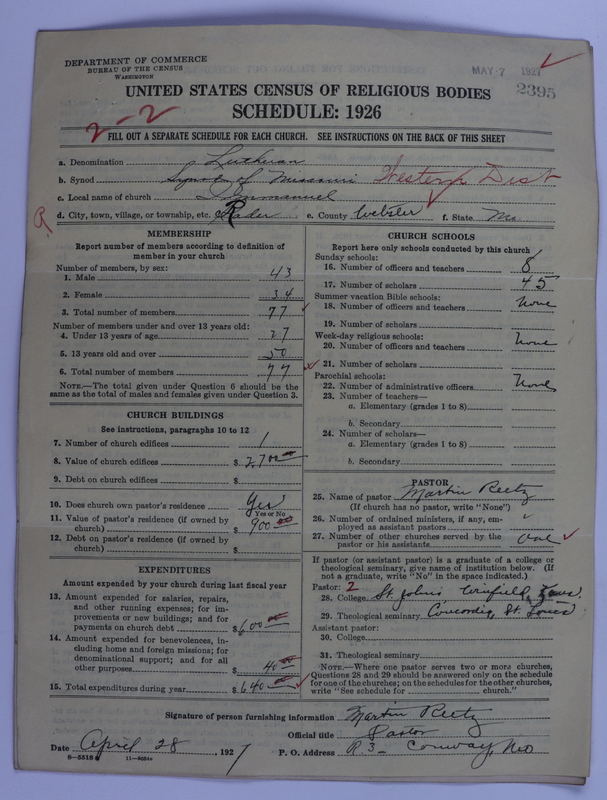 DEPARTMENT OF COMMERCE
BUREAU OF THE CENSUS
WASHINGTON
MAY 7 1927
2395
UNITED STATES CENSUS OF RELIGIOUS BODIES
SCHEDULE: 1926
2-2
FILL OUT A SEPARATE SCHEDULE FOR EACH CHURCH. SEE INSTRUCTIONS ON THE BACK OF THIS SHEET
a. Denomination Lutheran
b. Synod Synod of Missouri Western Dist
c. Local name of church Immanuel
d. City, town, village, or township, etc. Rader e. County Webster f. State Mo.
MEMBERSHIP
Report number of members according to definition of
member in your church
Number of members, by sex:
1. Male 43
2. Female 34
3. Total number of members 77
Number of members under and over 13 years old:
4. Under 13 years of age 27
5. 13 years old and over 50
6. Total number of members 77
NOTE.—The total given under Question 6 should be the
same as the total of males and females given under Question 3.
CHURCH BUILDINGS
See instructions, paragraphs 10 to 12
7. Number of church edifices 1
8. Value of church edifices $ 2700
9. Debt on church edifices $
10. Does church own pastor's residence Yes
Yes or No
11. Value of pastor's residence (if owned by
church) $ 900.00
12. Debt on pastor's residence (if owned by
church) $
EXPENDITURES
Amount expended by your church during last fiscal year
13. Amount expended for salaries, repairs,
and other running expenses; for im-
provements or new buildings; and for
payments on church debt $ 600.00
14. Amount expended for benevolences, in-
cluding home and foreign missions; for
denominational support; and for all
other purposes $ 40.00
15. Total expenditures during year $ 640.00
CHURCH SCHOOLS
Report here only schools conducted by this church
Sunday schools:
16. Number of officers and teachers 8
17. Number of scholars 45
Summer vacation Bible schools:
18. Number of officers and teachers None
19. Number of scholars
Week-day religious schools:
20. Number of officers and teachers None
21. Number of scholars
Parochial schools:
22. Number of administrative officers None
23. Number of teachers—
a. Elementary (grades 1 to 8)
b. Secondary
24. Number of scholars—
a. Elementary (grades 1 to 8)
b. Secondary
PASTOR
25. Name of pastor Martin Reetz
(If church has no pastor, write "None")
26. Number of ordained ministers, if any, em-
ployed as assistant pastors
27. Number of other churches served by the
pastor or his assistants one
If pastor (or assistant pastor) is a graduate of a college or
theological seminary, give name of institution below. (If
not a graduate, write "No" in the space indicated.)
Pastor: 2
28. College St. Johns Winfield, Kans.
29. Theological seminary Concordia, St. Louis
Assistant pastor:
30. College
31. Theological seminary
NOTE.—Where one pastor serves two or more churches,
Questions 28 and 29 should be answered only on the schedule
for one of the churches; on the schedules for the other churches,
write "See schedule for church."
Signature of person furnishing information Martin Reetz
Official title Pastor
Date April 28, 1927 P. O. Address R 3- Conway, Mo
8-5518a 11-9034a